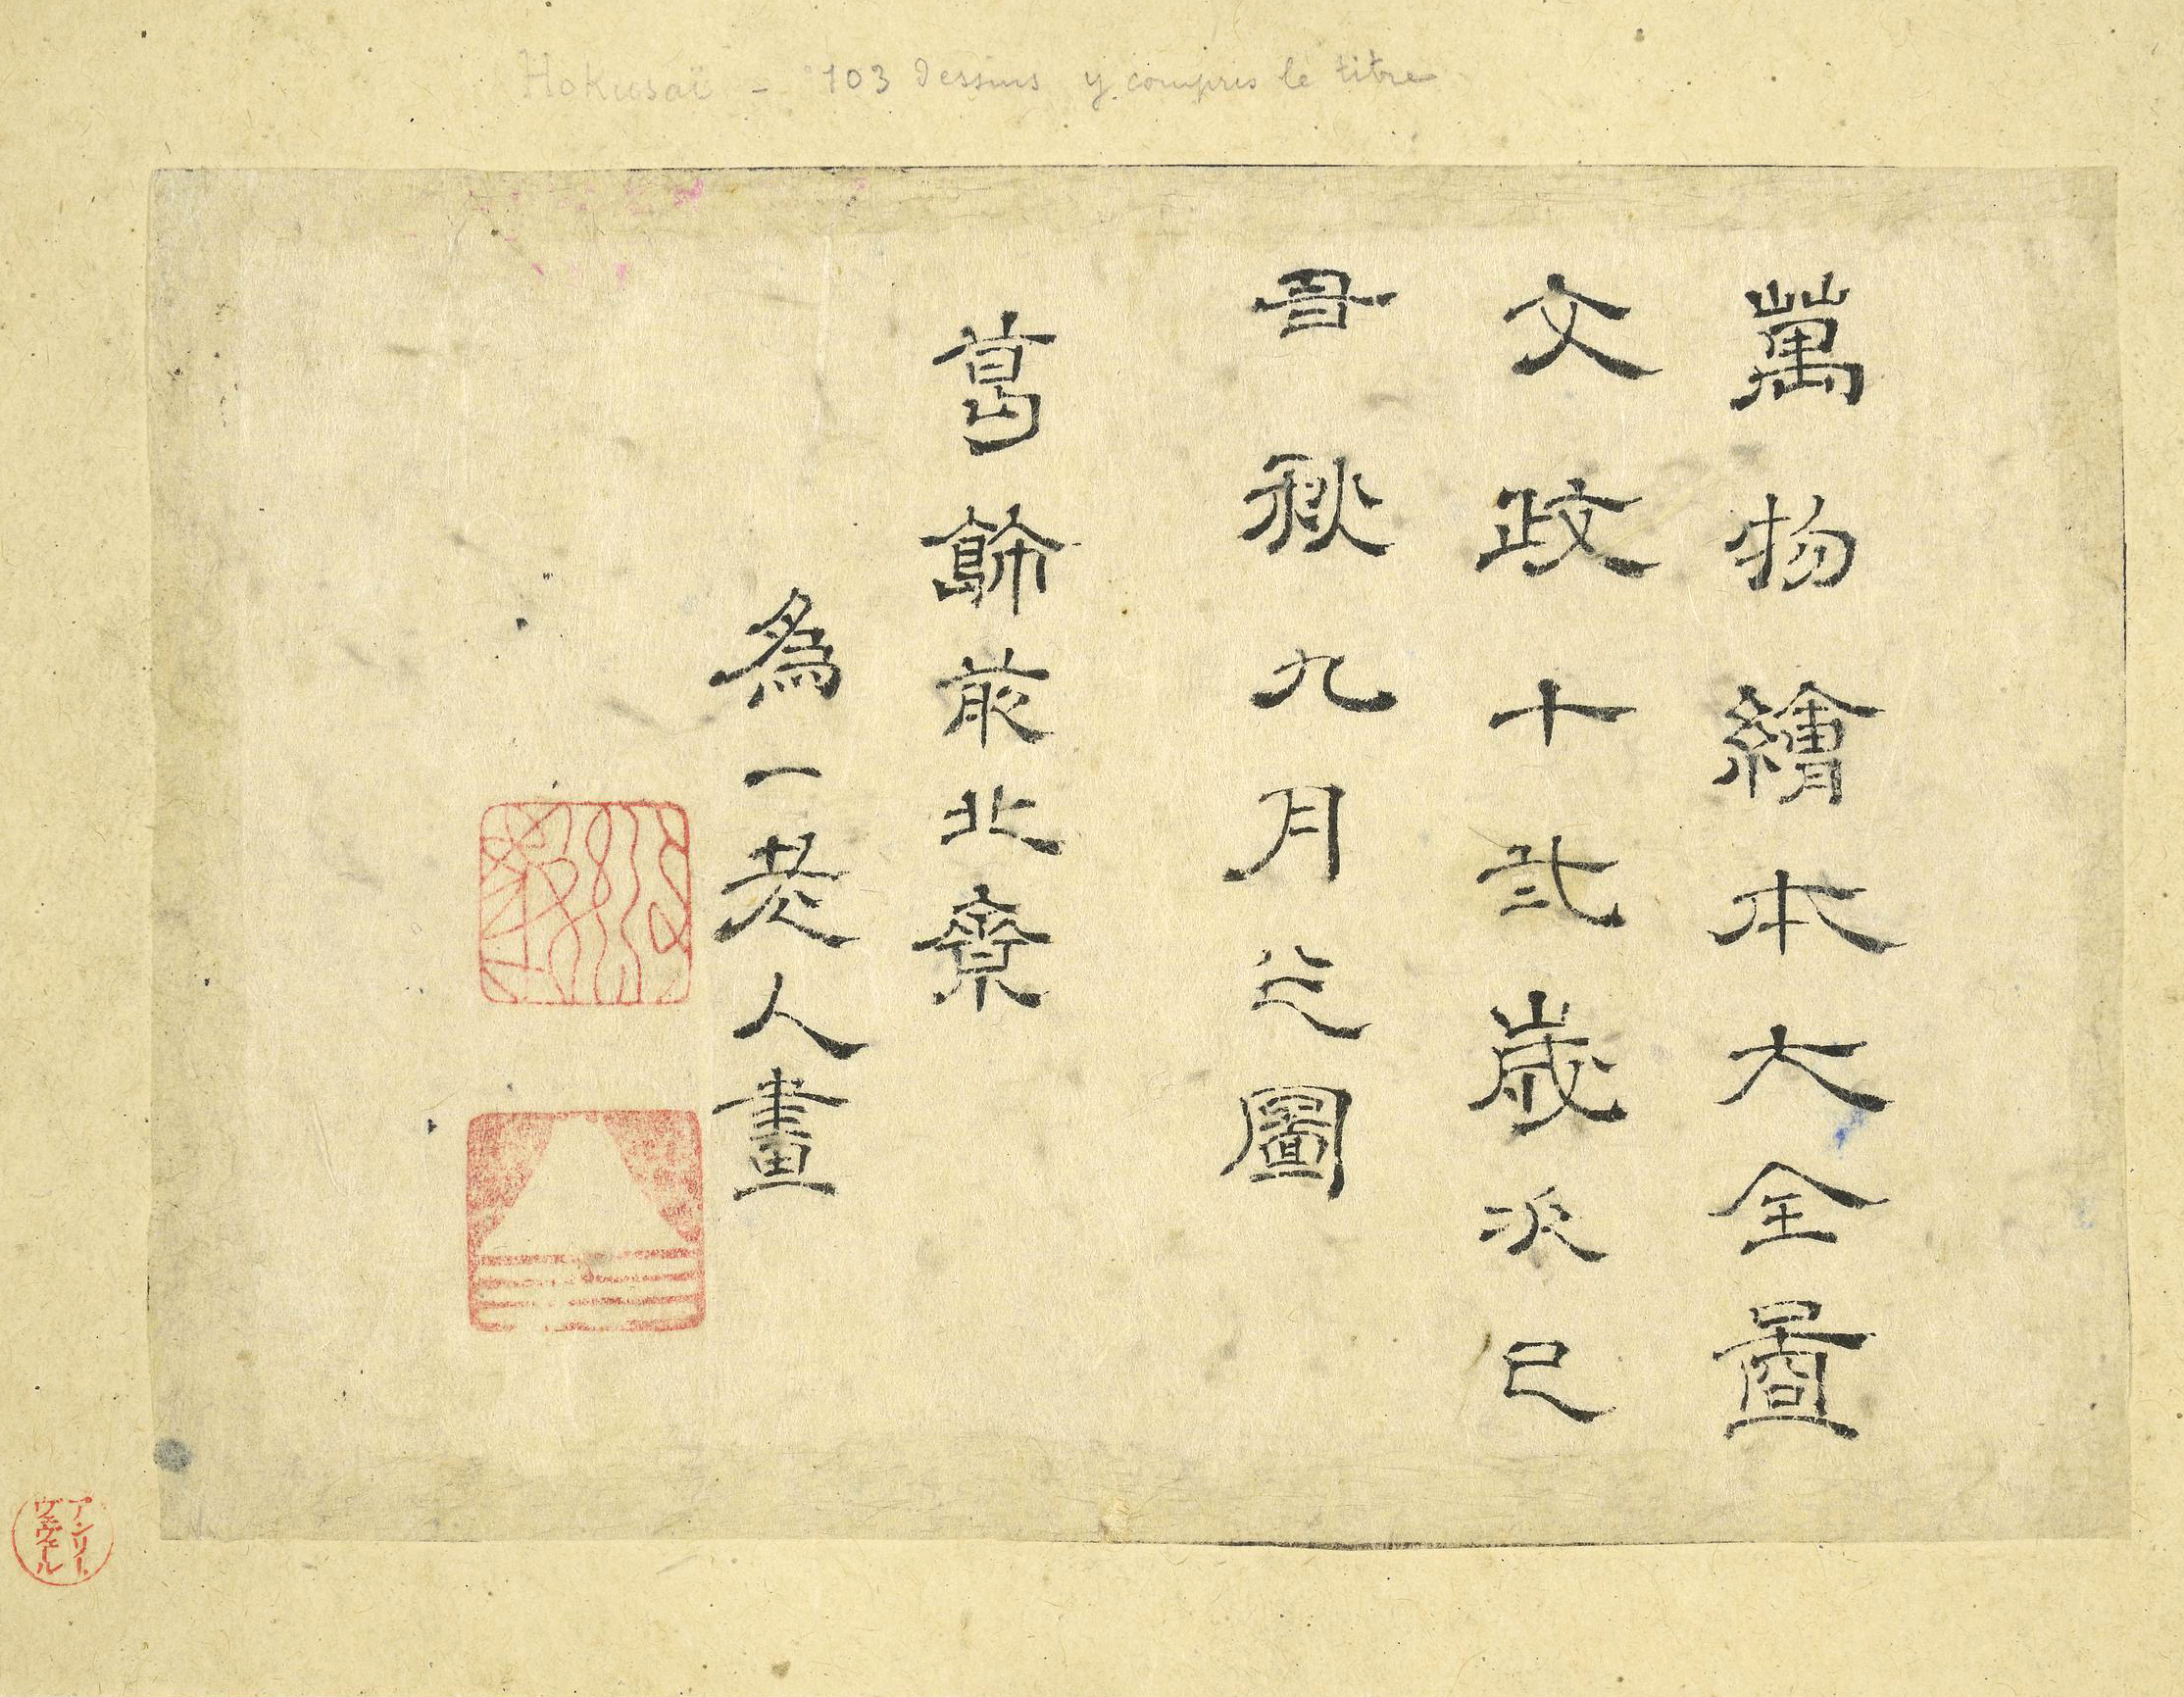 Hokusaï - 103 dessins y compris le titre
萬物繪本大全圖
文政十弐歳
秋九月之圖
葛飾前北齋
為一老人畫
アンリー・
ヴェヴェール